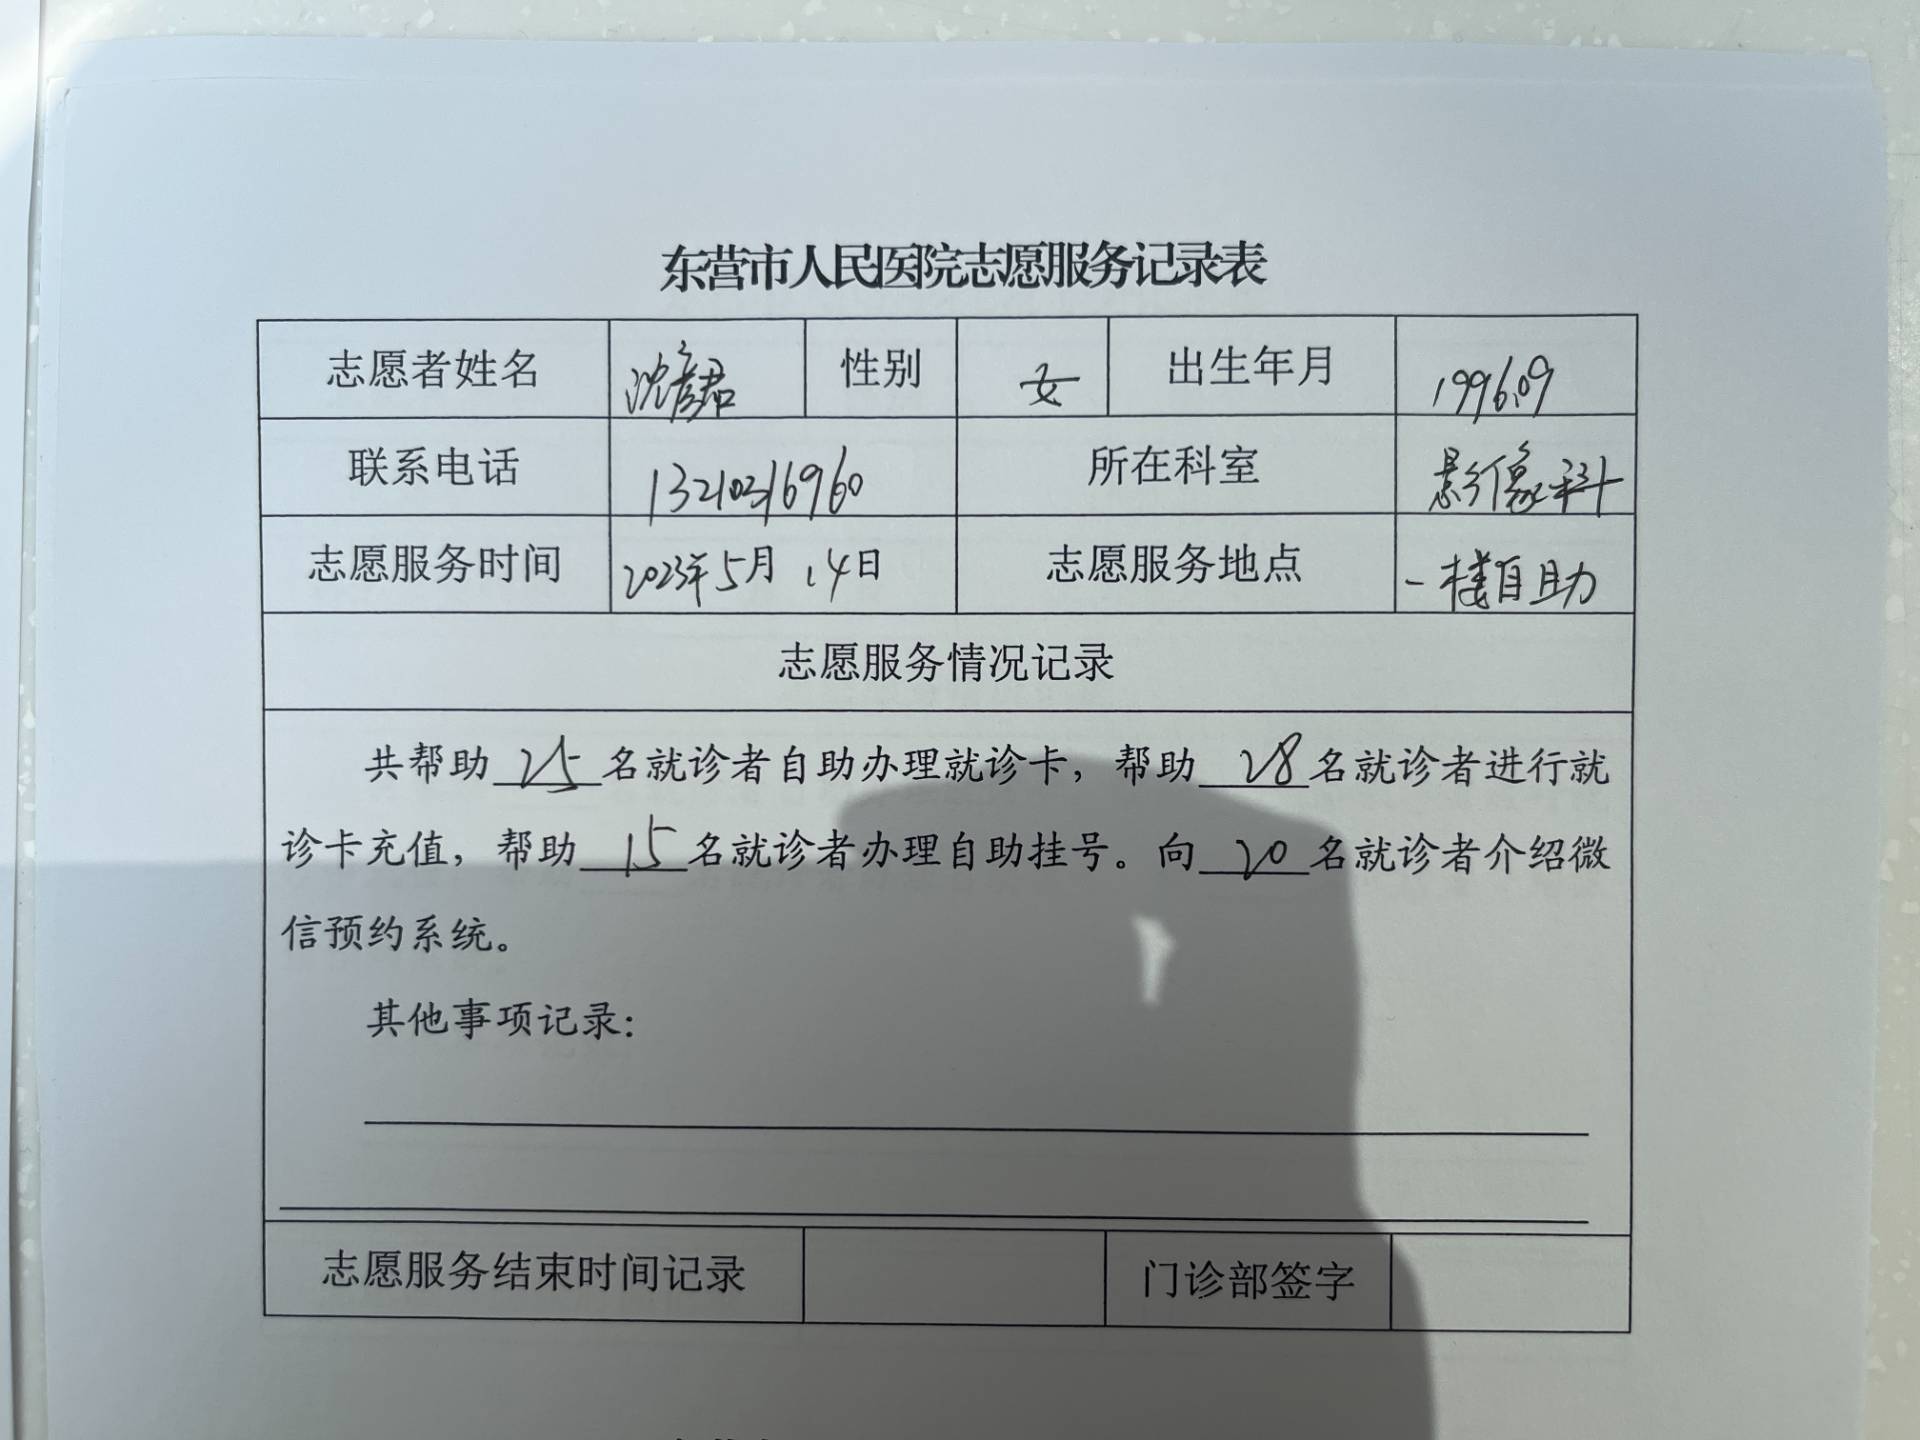 东营市人民医院志愿服务记录表
志愿者姓名 沈彦君 性别 女 出生年月 1996.09
联系电话 13210316960 所在科室 影像科
志愿服务时间 2023年5月14日 志愿服务地点 一楼自助
志愿服务情况记录
共帮助25名就诊者自助办理就诊卡，帮助28名就诊者进行就
诊卡充值，帮助15名就诊者办理自助挂号。向20名就诊者介绍微
信预约系统。
其他事项记录：
志愿服务结束时间记录 门诊部签字